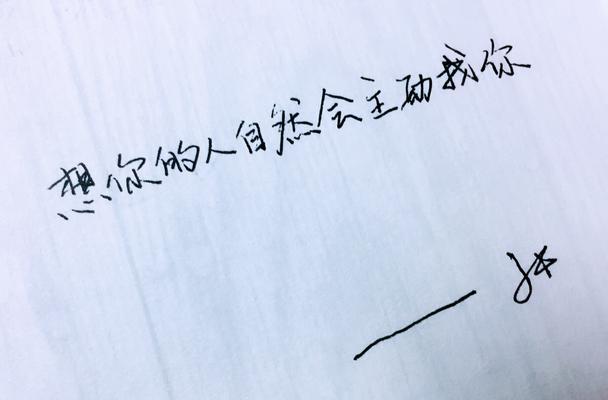 想你的人自然会主动找你